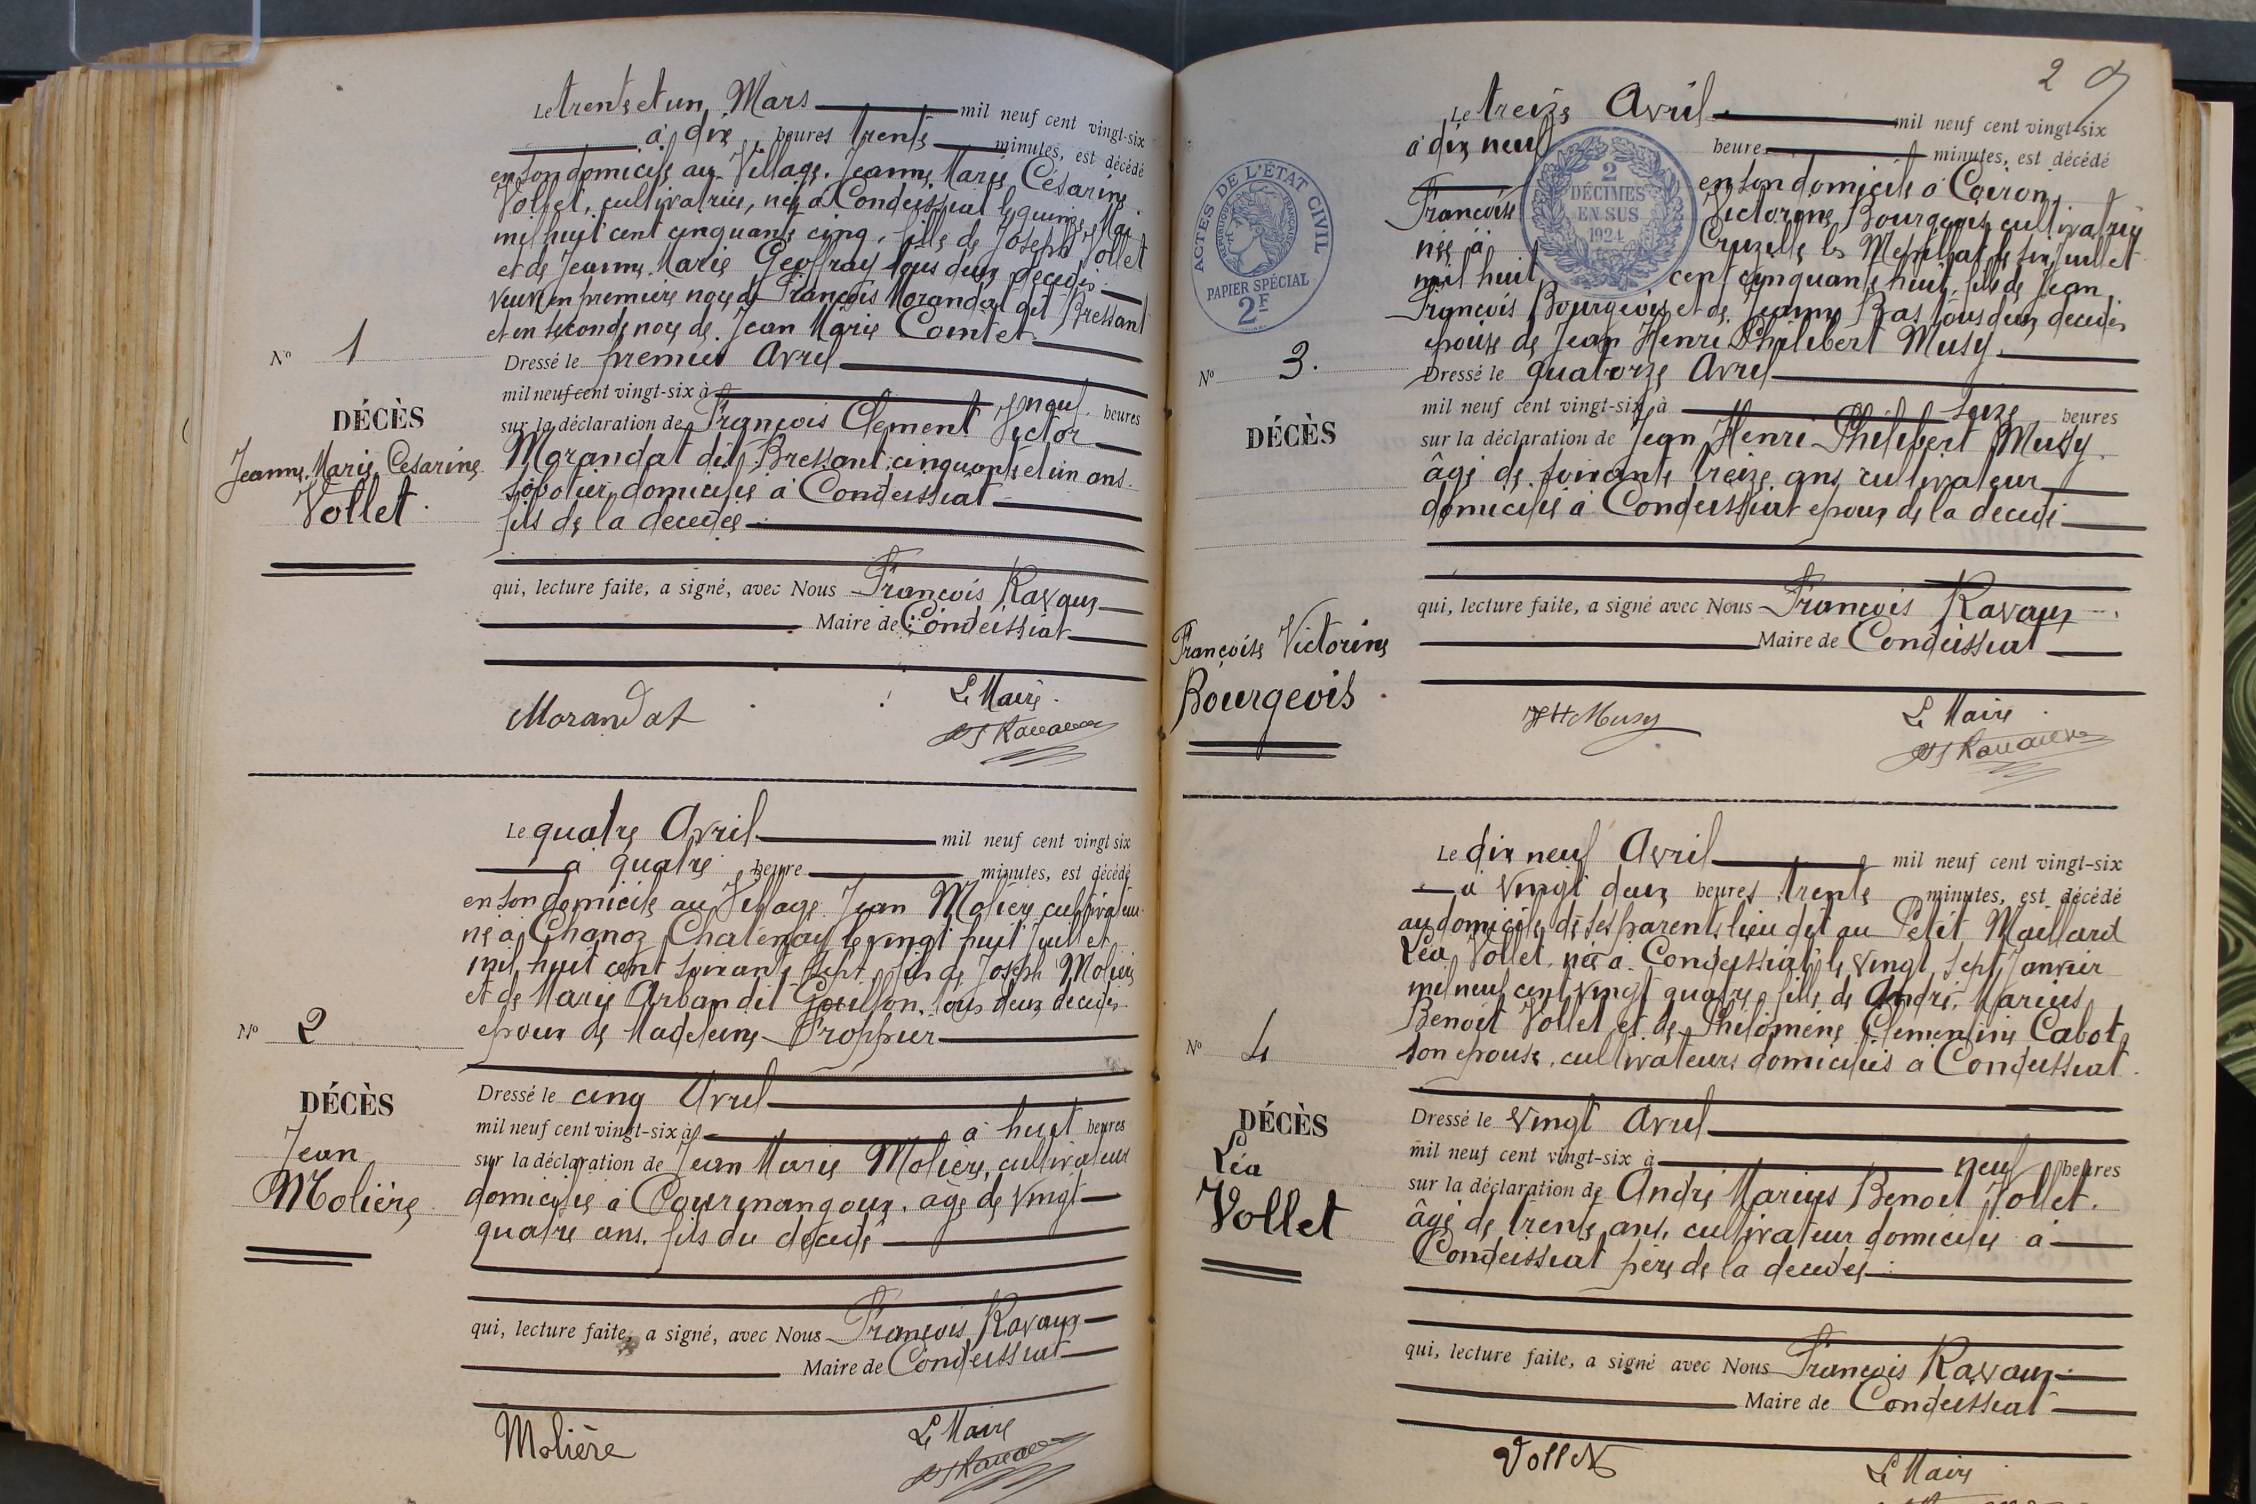 Le trente et un Mars mil neuf cent vingt-six
à dix heures trente minutes, est décédé
en son domicile au Village. Jeanne Marie Césarine
Vollet, cultivatrice, née à Condeissiat le quinze Mai
mil huit cent cinquante cinq, fille de Joseph Vollet
et de Jeanne Marie Geoffray tous deux décédés.
veuve en première noce de François Morandat dit Bressant
et en seconde noce de Jean Marie Comtet
Nº 1
Dressé le premier Avril
mil neuf cent vingt-six à neuf heures
DÉCÈS
sur la déclaration de François Clement Victor
Jeanne Marie Césarine
Morandat dit Bressant cinquante et un ans.
Vollet.
sabotier, domicilié à Condeissiat
fils de la décédée
qui, lecture faite, a signé, avec Nous François Ravaux
Maire de Condeissiat
Morandat
Le Maire.
Le quatre Avril mil neuf cent vingt six
à quatre heure minutes, est décédé
en son domicile au Village Jean Molière cultivateur
né à Chanoz Chatenay le vingt huit Juillet
mil huit cent soixante sept, fils de Joseph Molière
et de Marie Arban dit Goullon, tous deux décédés
époux de Madeleine Proppier
Nº 2
DÉCÈS
Jean
Molière
Dressé le cinq Avril
mil neuf cent vingt-six à à huit heures
sur la déclaration de Jean Marie Molière, cultivateur
domicilié à Courmangoux, agé de vingt
quatre ans. fils du décédé
qui, lecture faite, a signé, avec Nous François Ravaux
Maire de Condeissiat
Molière
Le Maire
2
Le treize Avril mil neuf cent vingt-six
à dix neuf heure minutes, est décédé
en son domicile à Coiron,
Françoise Victorine Bourgeois cultivatrice
née à Cruzille les Mepillat le six Juillet
mil huit cent cinquante huit, fille de Jean
François Bourgeois et de Jeanne Bas tous deux décédés
épouse de Jean Henri Philibert Musy
ACTES DE L'ÉTAT CIVIL
RÉPUBLIQUE FRANÇAISE
PAPIER SPÉCIAL
2F
2
DÉCIMES
EN SUS
1924
Nº 3.
DÉCÈS
Françoise Victorine
Bourgeois
Dressé le quatorze Avril
mil neuf cent vingt-six à seize heures
sur la déclaration de Jean Henri Philibert Musy
âgé de soixante treize ans cultivateur
domicilié à Condeissiat époux de la décédé
qui, lecture faite, a signé avec Nous François Ravaux
Maire de Condeissiat
JH Musy
Le Maire
Le dix neuf Avril mil neuf cent vingt-six
à vingt deux heures trente minutes, est décédé
au domicile de ses parents lieu dit au Petit Maillard
Léa Vollet née à Condeissiat le vingt sept Janvier
mil neuf cent vingt quatre, fille de André, Marius
Benoit Vollet et de Philomène Clementine Cabot
son épouse, cultivateurs domiciliés à Condeissiat.
Nº 4
DÉCÈS
Léa
Vollet
Dressé le vingt Avril
mil neuf cent vingt-six à neuf heures
sur la déclaration de André Marius Benoit Vollet.
âgé de trente ans, cultivateur domicilié à
Condeissiat père de la décédée
qui, lecture faite, a signé avec Nous François Ravaux
Maire de Condeissiat
Vollet
Le Maire